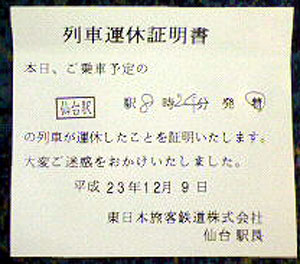 列車運休証明書
本日、ご乗車予定の
仙台駅 駅 8 時 24 分 発 着
の列車が運休したことを証明いたします。
大変ご迷惑をおかけいたしました。
平成 23年12月 9 日
東日本旅客鉄道株式会社
仙台 駅長